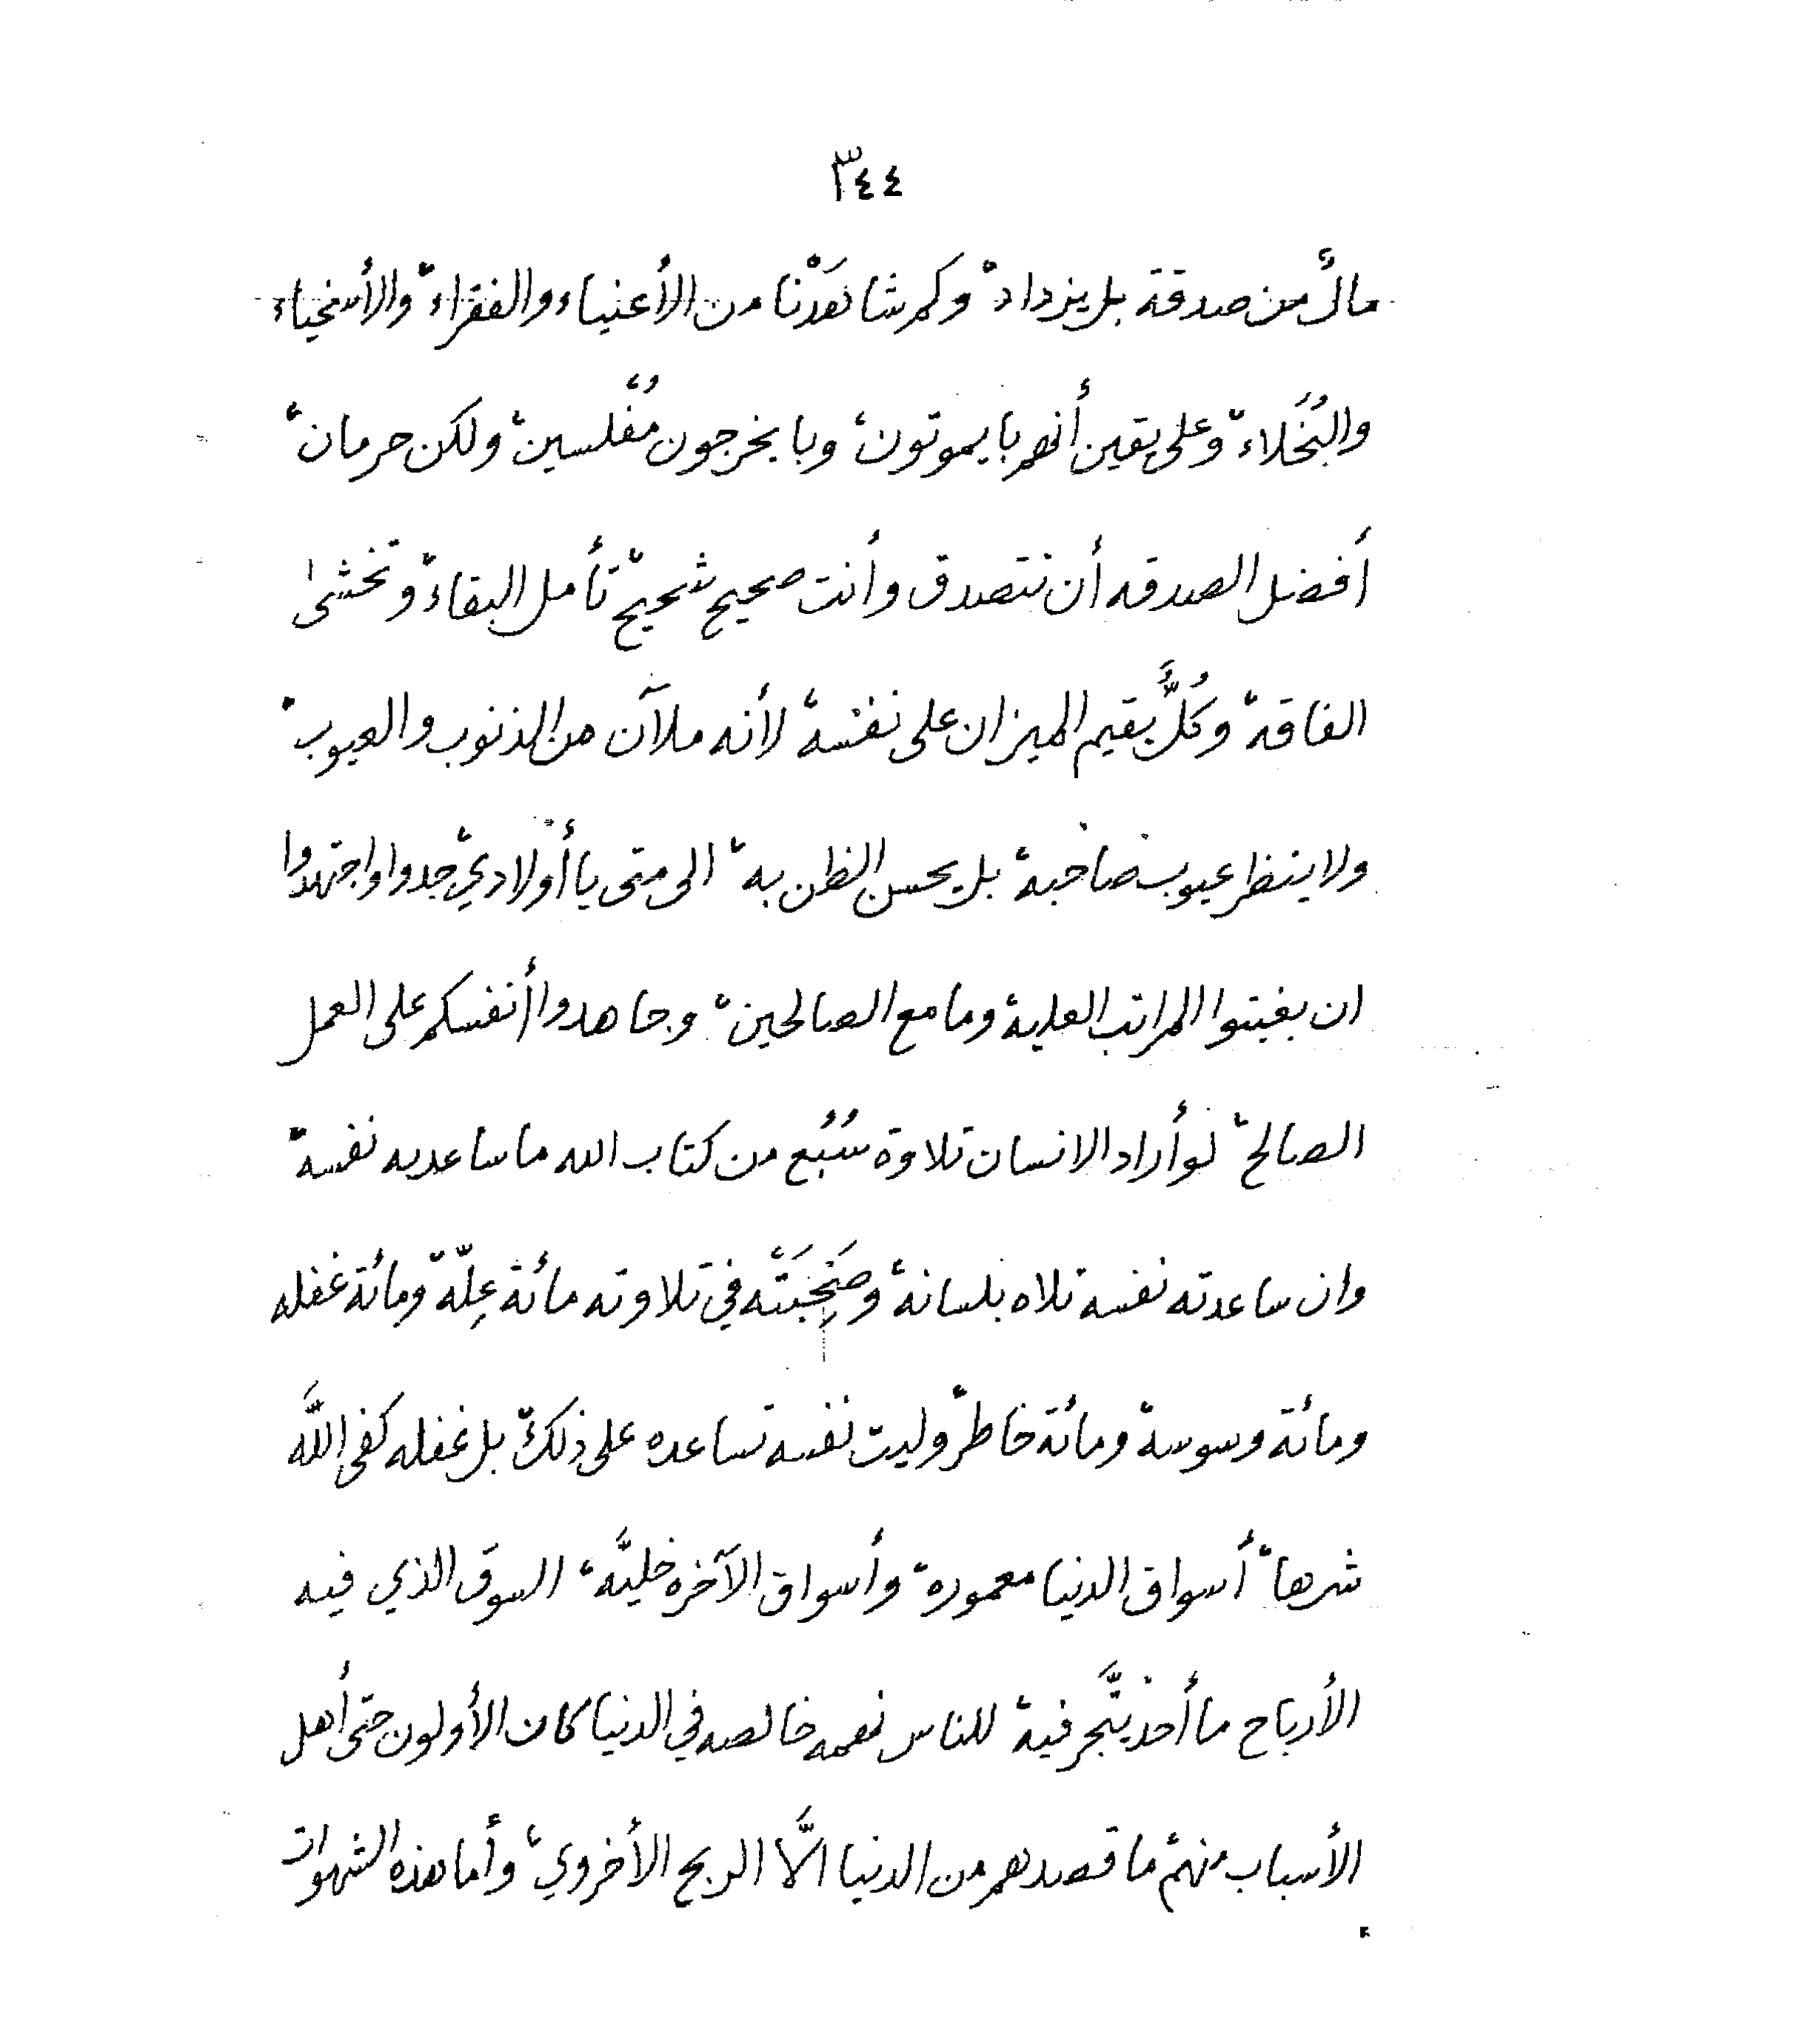 ٣٤٤
مالٌ من صدقة بل يزداد، وكم شاهَدْنا من الأغنياء والفقراء، والأسخياء
والبُخَلاء، وعلى يقين أنهم بايموتون، وبايخرجون مُفْلسين، ولكن حرمان،
أفضل الصدقه أن تتصدق وأنت صحيح شحيح، تأمل البقاء، وتخشى
الفاقة، وكُلَّ يقيم الميزان على نفسه، لأنه ملآن من الذنوب والعيوب،
ولا ينظر عيوب صاحبه، بل يحسن الظن به، الى متى يا أولادي، جدوا واجتهدوا
ان بغيتوا المراتب العليه وما مع الصالحين، وجاهدوا أنفسكم على العمل
الصالح، لو أراد الانسان تلاوة سُبُع من كتاب الله ما ساعدته نفسه،
وان ساعدته نفسه تلاه بلسانه، وصَحِبَتْه في تلاوته مائة عِلّة، ومائة غفله
ومائة وسوسة، ومائة خاطر، وليت نفسه تساعده على ذلك، بل غفله كفى اللَّه
شرها، أسواق الدنيا معموره، وأسواق الآخره خليَّه، السوق الذي فيه
الأرباح ما أحد يتَّجر فيه، للناس نعمه خالصه في الدنيا كان الأولون حتى أهل
الأسباب منهم، ما قصدهم من الدنيا الَّا الربح الأخروي، وأما هذه الشهوات